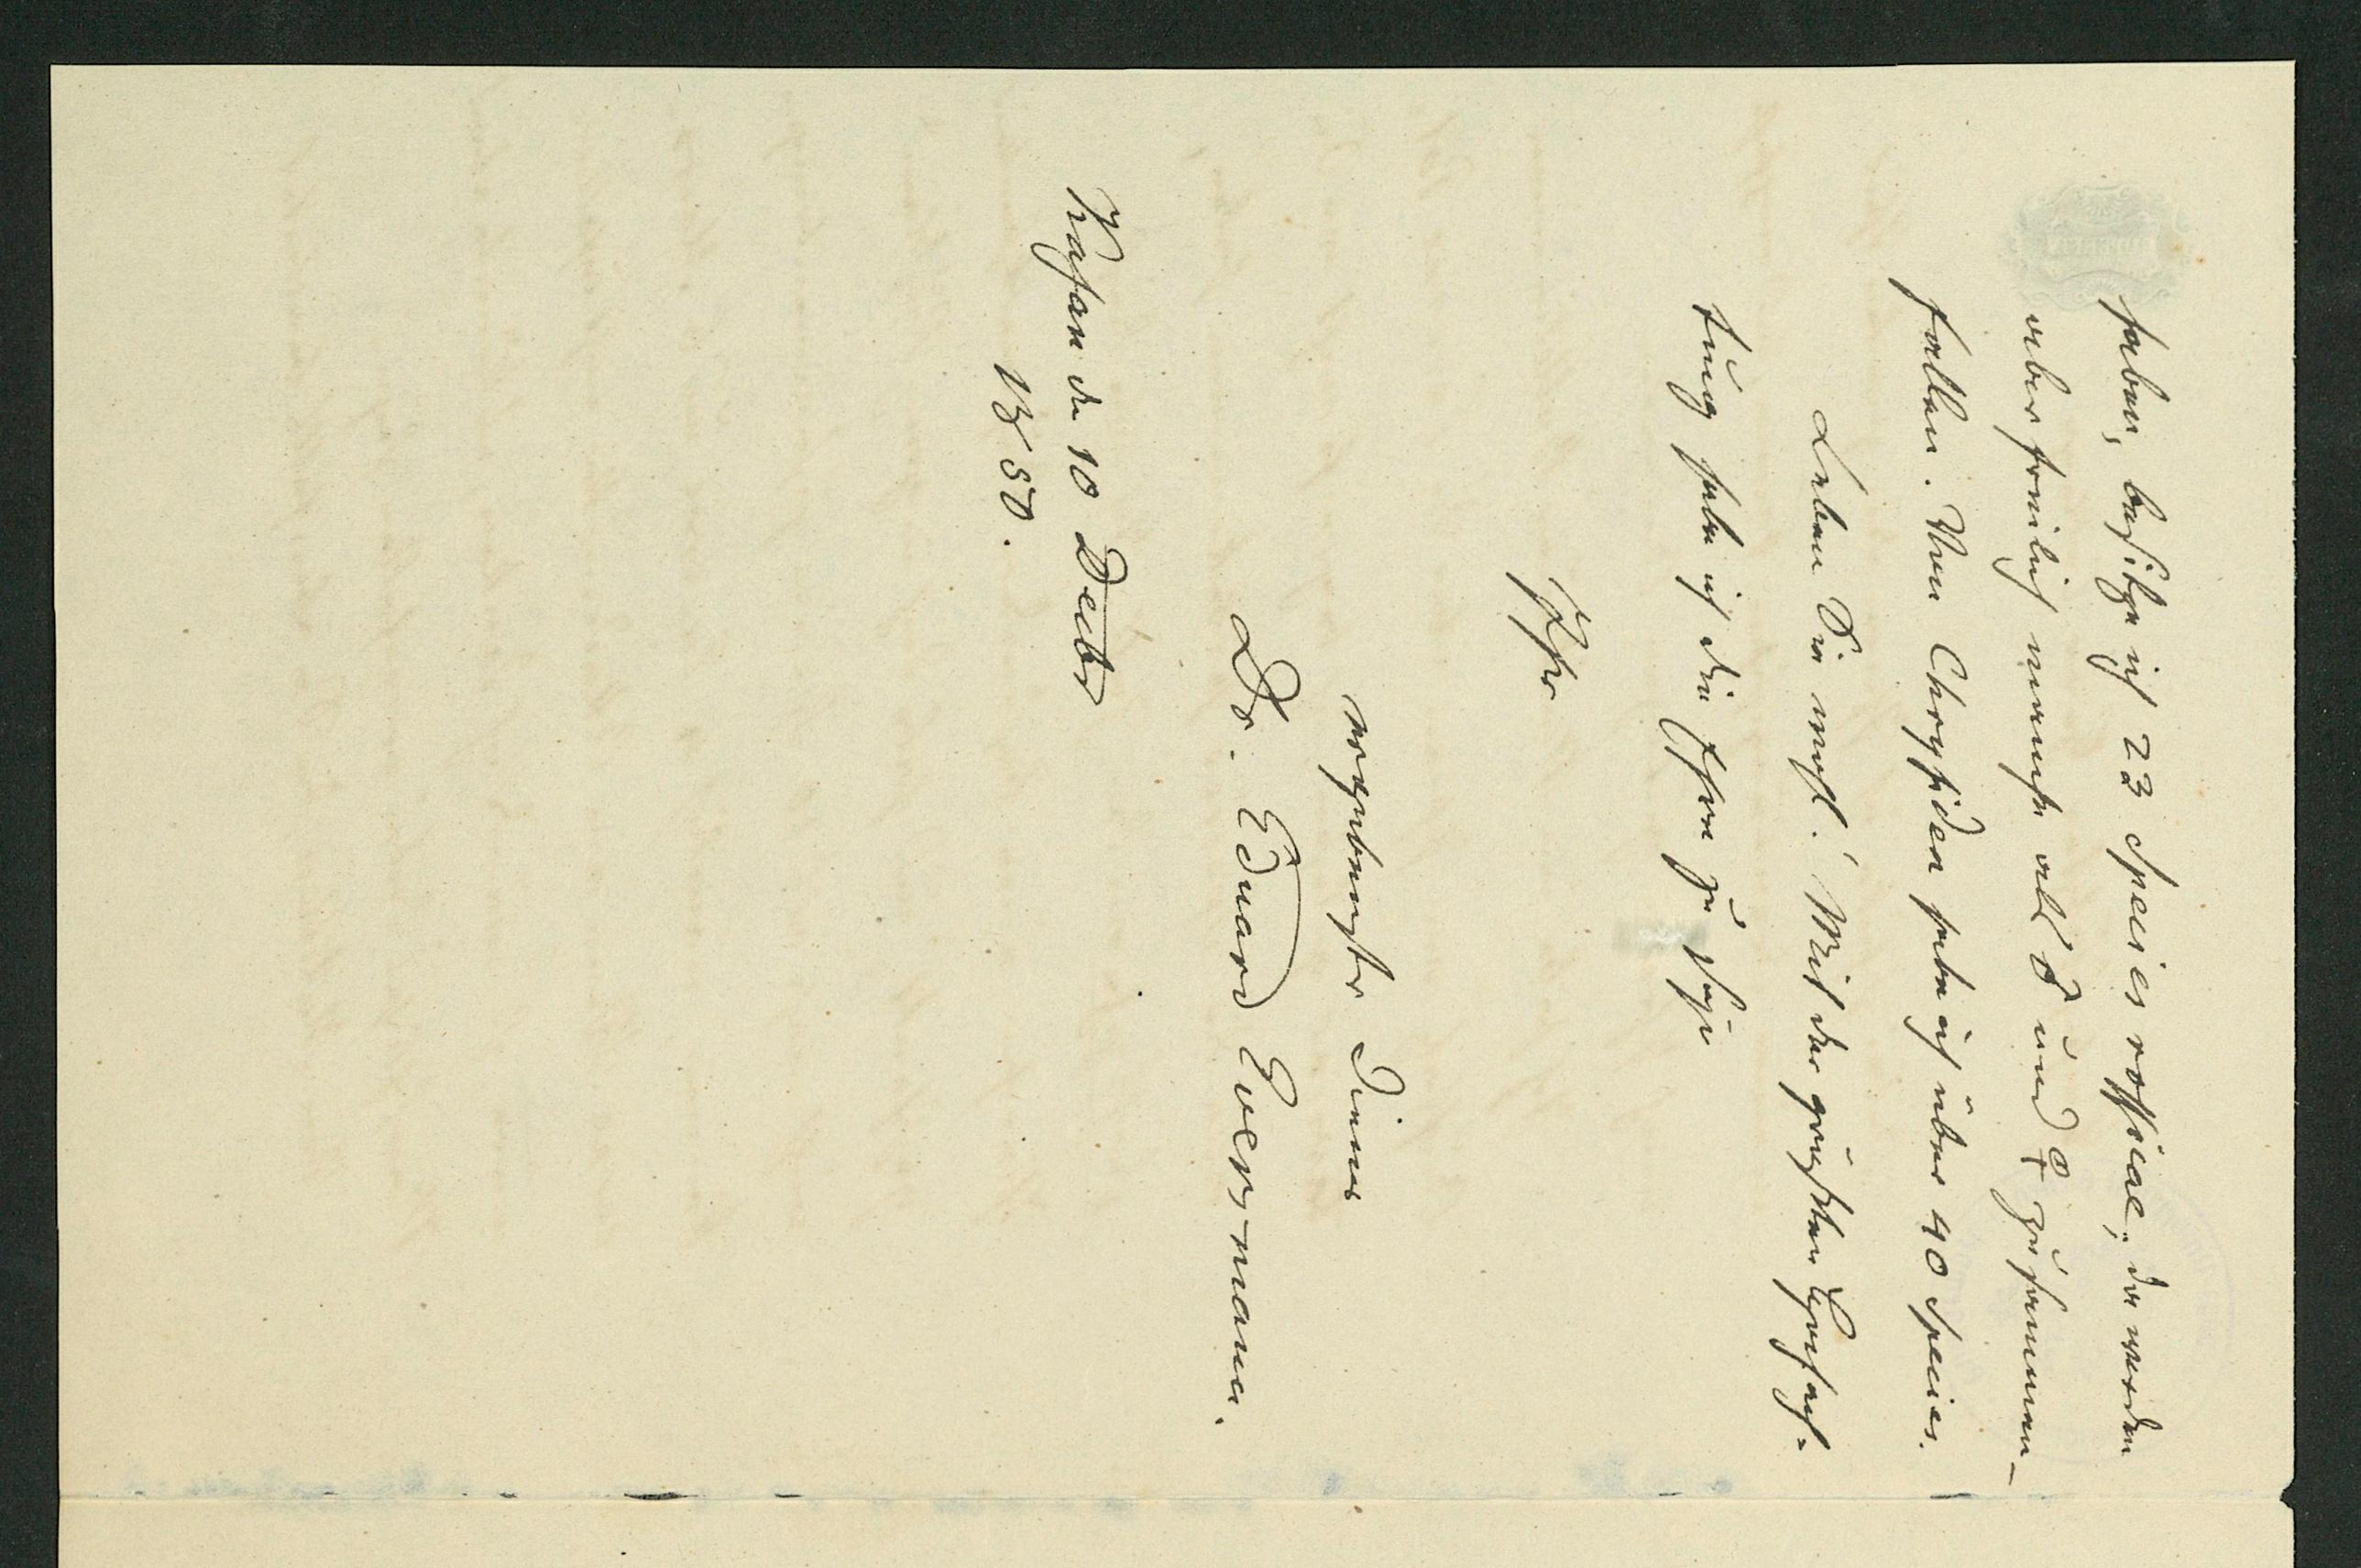 haben, besitze ich 23 Species rossicae; da werden
aber freilich manche als ♂ und ♀ zusammen-
fallen. Von Chrysiden habe ich über 40 Species.
Leben Sie wohl! Mit der größten Hochach-
tung habe ich die Ehre zu seyn
Ihr
ergebenster Diener
Dr. Eduard Eversmann.
Kasan d 10 Decbr
1850.